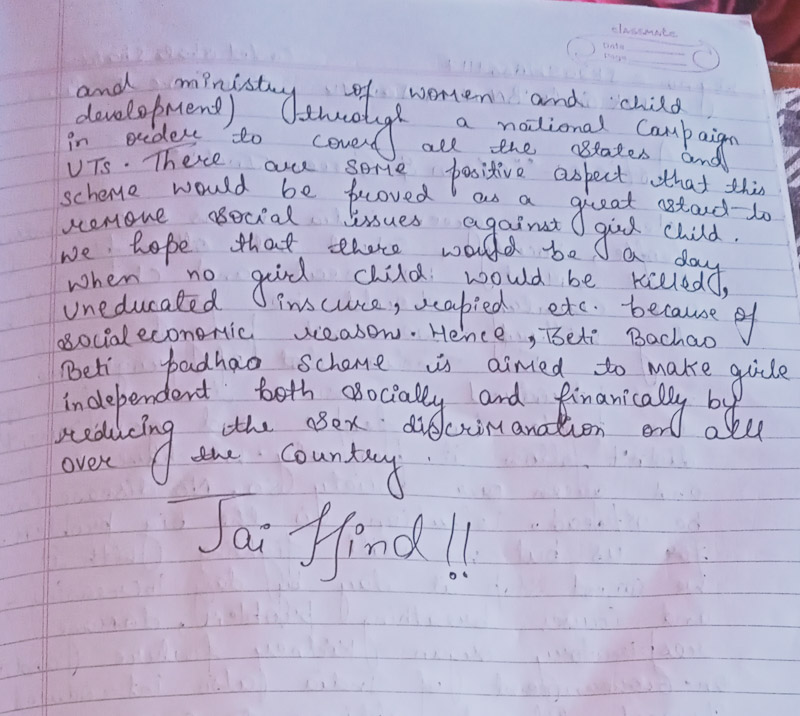 classmate
Date
Page
and ministry of women and child
development) through a national campaign
in order to cover all the states and
UTs. There are some positive aspect that this
scheme would be proved as a great start to
remove social issues against girl child.
we hope that there would be a day
when no girl child would be killed,
uneducated inscure, rapied etc. because of
social economic reason. Hence, Beti Bachao
Beti padhao scheme is aimed to make girls
independent both socially and finanically by
reducing the sex discrimanation on all
over the country.
Jai Hind!!